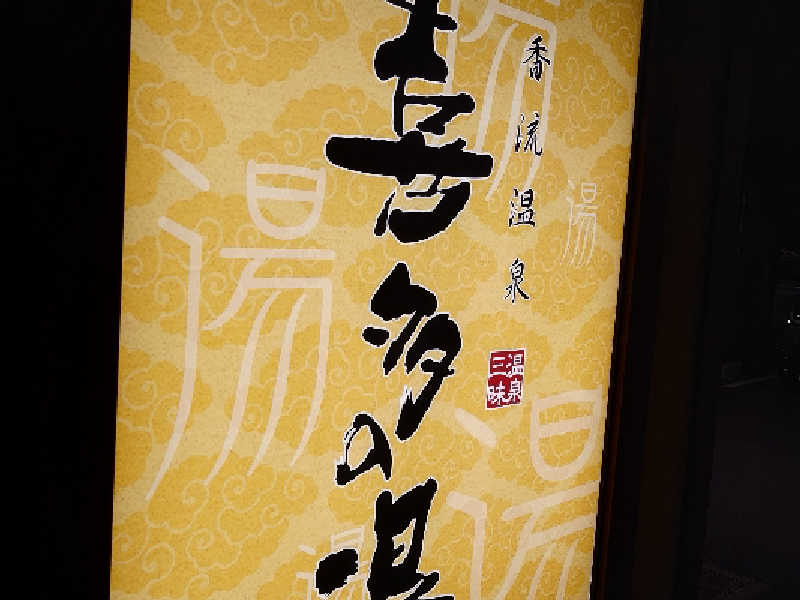 香流温泉
喜多の湯
温泉
三昧
湯
湯
湯
湯
湯